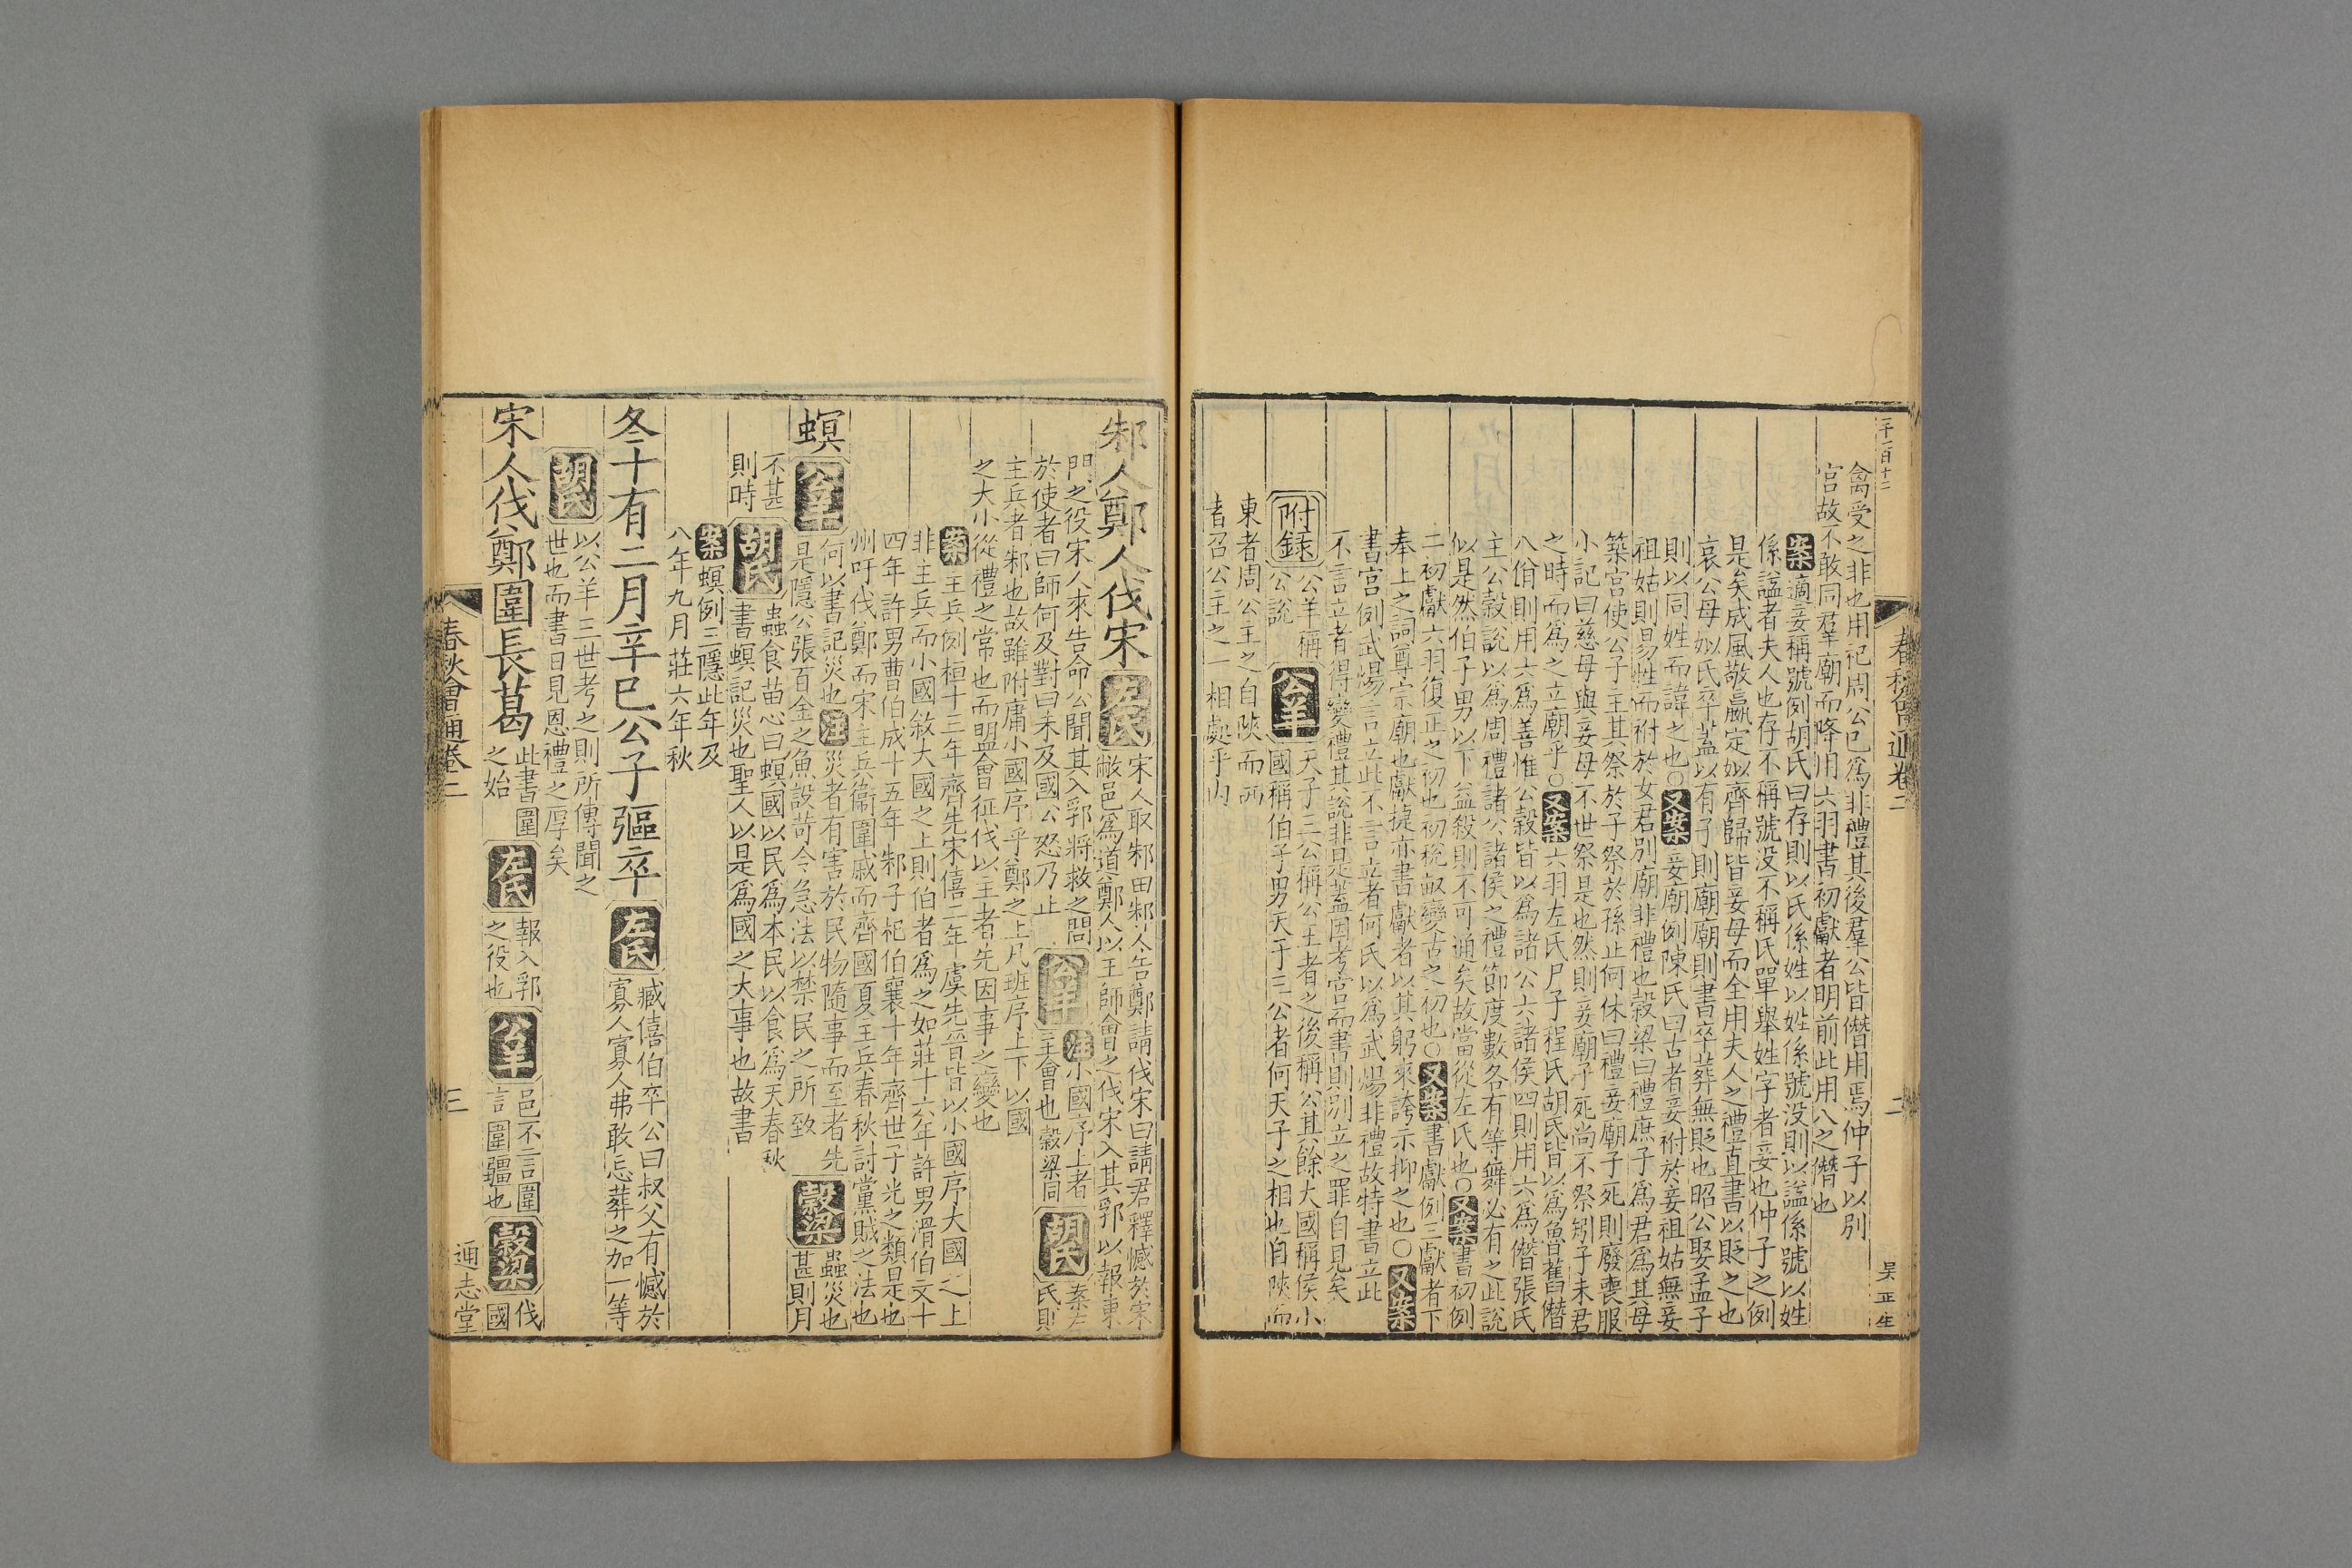 禽受之非也用祀周公已爲非禮其後羣公皆僭用焉仲子以別
宮故不敢同羣廟而降用六羽書初獻者明前此用八之僭也
案適妾稱號例胡氏曰存則以氏係姓以姓係號没則以謚係號以姓
係謚者夫人也存不稱號没不稱氏單舉姓字者妾也仲子之例
是矣成風敬嬴定姒齊歸皆妾母而全用夫人之禮直書以貶之也
哀公母姒氏卒蓋以有子則廟廟則書卒葬無貶也昭公娶孟子
則以同姓而諱之也○又案妾廟例陳氏曰古者妾祔於妾祖姑無妾
祖姑則易牲而祔於女君別廟非禮也穀梁曰禮庶子爲君爲其母
築宮使公子主其祭於子祭於孫止何休曰禮妾廟子死則廢喪服
小記曰慈母與妾母不世祭是也然則妾廟子死尚不祭矧子未君
之時而爲之立廟乎○又案六羽左氏尸子程氏胡氏皆以爲魯舊僭
八佾則用六爲善惟公穀皆以爲諸公六諸侯四則用六爲僭張氏
主公穀說以爲周禮諸公諸侯之禮節度數各有等舞必有之此說
似是然伯子男以下益殺則不可通矣故當從左氏也○又案書初例
二初獻六羽復正之初也初稅畝變古之初也○又案書獻例三獻者下
奉上之詞尊宗廟也獻捷亦書獻者以其躬來誇示抑之也○又案
書宮例武煬言立此不言立者何氏以爲武煬非禮故特書立此
不言立者得變禮其說非是蓋因考宮而書則別立之罪自見矣
附録公羊稱公說公羊天子三公稱公王者之後稱公其餘大國稱侯小
國稱伯子男天子三公者何天子之相也自陝而
東者周公主之自陝而西
者召公主之一相處乎内
春秋會通卷二
二
吴正生
邾人鄭人伐宋左氏宋人取邾田邾人告鄭請伐宋曰請君釋憾於宋
敝邑爲道鄭人以王師會之伐宋入其郛以報東
門之役宋人來告命公聞其入郛將救之問
於使者曰師何及對曰未及國公怒乃止公羊注小國序上者
主會也穀梁同胡氏案左氏則
主兵者邾也故雖附庸小國序乎鄭之上凡班序上下以國
之大小從禮之常也而盟會征伐以主者先因事之變也
案主兵例桓十三年齊先宋僖二年虞先晉皆以小國序大國之上
非主兵而小國敘大國之上則伯者爲之如莊十六年許男滑伯文十
四年許男曹伯成十五年邾子祀伯襄十年齊世子光之類是也
州吁伐鄭而宋主兵衞圍戚而齊國夏主兵春秋討黨賊之法也
螟公羊何以書記災也注災者有害於民物隨事而至者先
是隱公張百金之魚設苛令急法以禁民之所致穀梁蟲災也
甚則月
不甚
則時胡氏蟲食苗心曰螟國以民爲本民以食爲天春秋
書螟記災也聖人以是爲國之大事也故書
案螟例三隱此年及
八年九月莊六年秋
冬十有二月辛巳公子彄卒左氏臧僖伯卒公曰叔父有憾於
寡人寡人弗敢忘葬之加一等
胡氏以公羊三世考之則所傳聞之
世也而書日見恩禮之厚矣
宋人伐鄭圍長葛此書圍之始左氏報入郛之役也公羊邑不言圍言圍彊也穀梁伐國
春秋會通卷二
三
通志堂